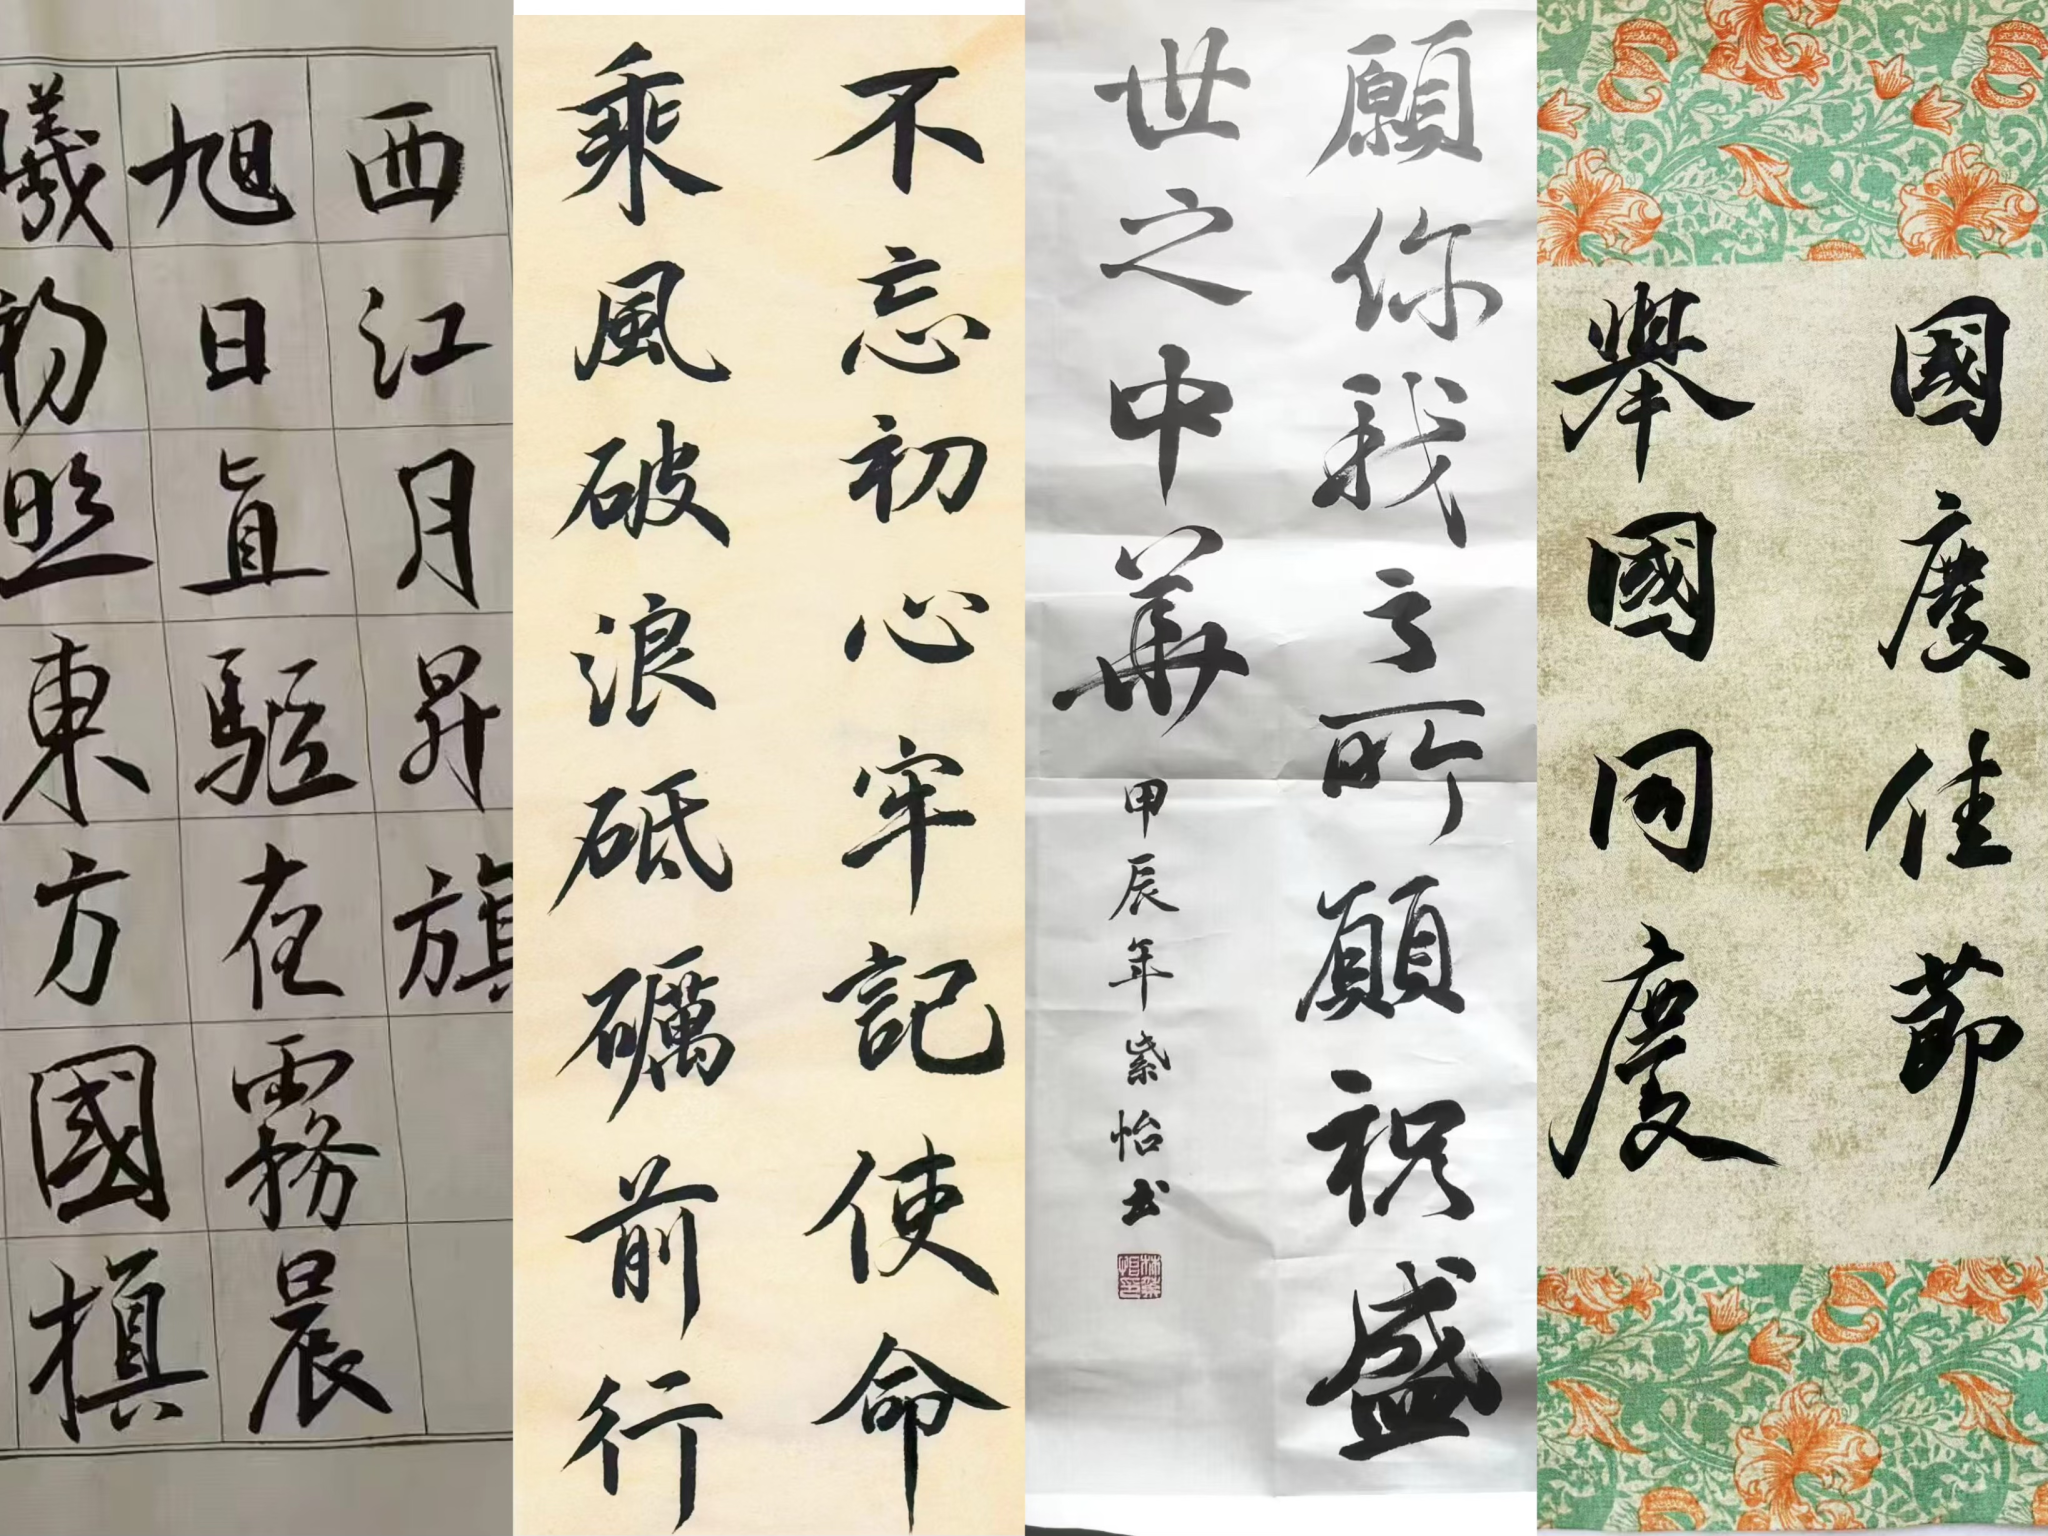 西江月昇旗
旭日直駈夜霧晨
曦初照東方國旗
不忘初心牢記使命
乘風破浪砥礪前行
願你我之所願祝盛
世之中華
甲辰年紫怡书
林紫怡印
國慶佳節
舉國同慶